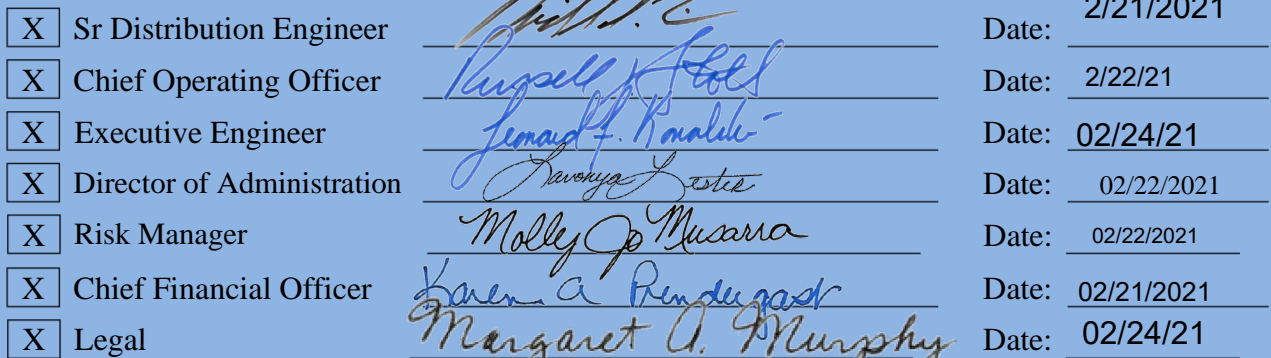 X Sr Distribution Engineer Date: 2/21/2021
X Chief Operating Officer Russell Date: 2/22/21
X Executive Engineer Date: 02/24/21
X Director of Administration Lavonya Lester Date: 02/22/2021
X Risk Manager Molly Jo Musarra Date: 02/22/2021
X Chief Financial Officer Karen A Prendergast Date: 02/21/2021
X Legal Margaret A. Murphy Date: 02/24/21